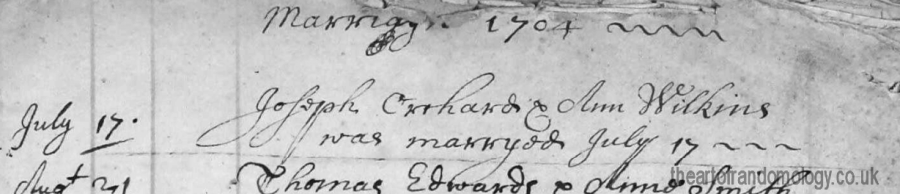 Marriages 1704
July 17. Joseph Orchard & Ann Wilkins
was marryed July 17
Augt 21 Thomas Edwards & Anne Smith
theartofrandomology.co.uk